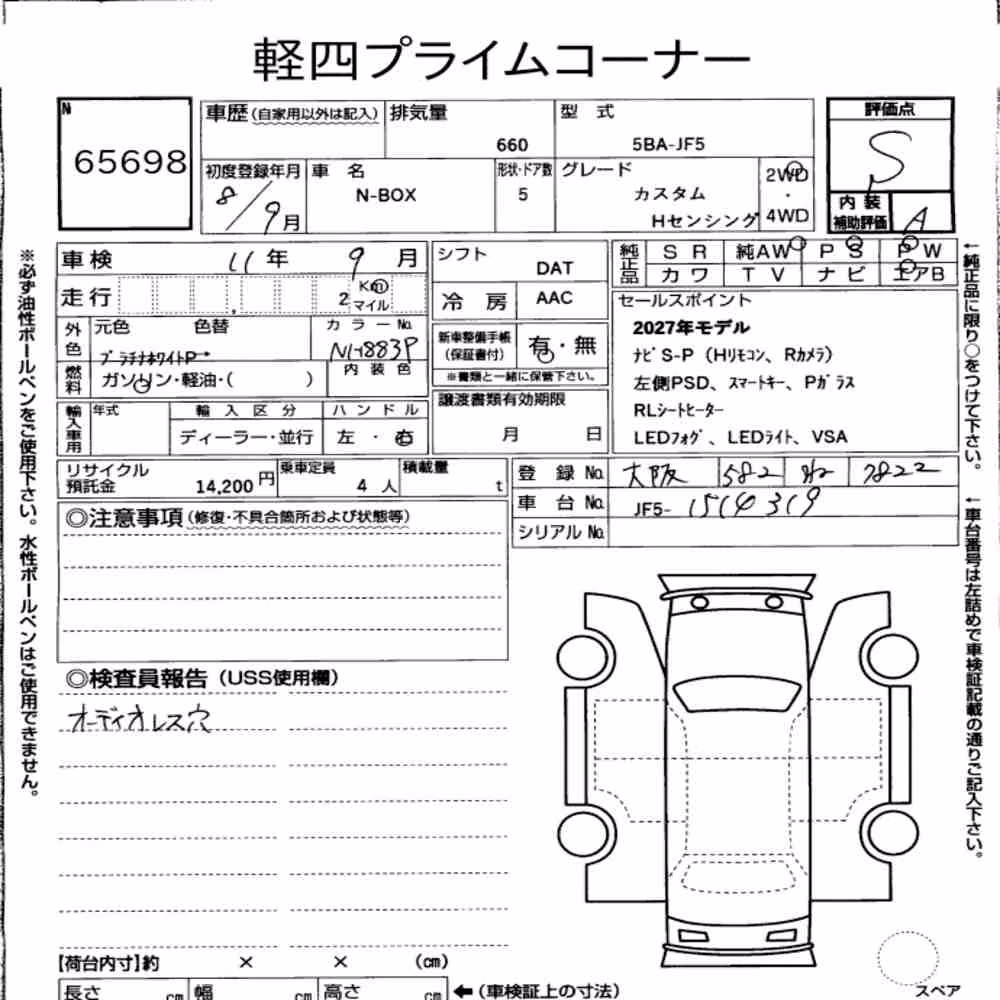 軽四プライムコーナー
N
65698
車歴(自家用以外は記入)
排気量
660
型 式
5BA-JF5
評価点
S
初度登録年月
8/9月
車 名
N-BOX
形状・ドア数
5
グレード
カスタム
Hセンシング
2WD
・
4WD
内 装
補助評価
A
車検 11年 9月
走行 2 Km マイル
シフト
DAT
冷 房
AAC
純正品
S R 純AW P S P W
カ ワ T V ナ ビ エアB
外色
元色 色替
プラチナホワイトP
カ ラ ー No.
NH883P
燃料
ガソリン・軽油・( )
内 装 色
新車整備手帳
(保証書付)
有・無
※書類と一緒に保管下さい。
セールスポイント
2027年モデル
ナビS-P(Hリモコン、Rカメラ)
左側PSD、スマートキー、Pガラス
RLシートヒーター
LEDフォグ、LEDライト、VSA
輸入車用
年式
輸 入 区 分
ディーラー・並行
ハ ン ド ル
左 ・ 右
譲渡書類有効期限
月 日
リサイクル
預託金
14,200円
乗車定員
4 人
積載量
t
登 録 No. 大阪 582 7822
車 台 No. JF5- 1514319
シリアル No.
◎注意事項(修復・不具合箇所および状態等)
◎検査員報告(USS使用欄)
オーディオレス穴
【荷台内寸】約 × × (cm)
長さ cm 幅 cm 高さ cm ←(車検証上の寸法)
スペア
※必ず油性ボールペンをご使用下さい。水性ボールペンはご使用できません。
←純正品に限り○をつけて下さい。
←車台番号は左詰めで車検証記載の通りご記入下さい。